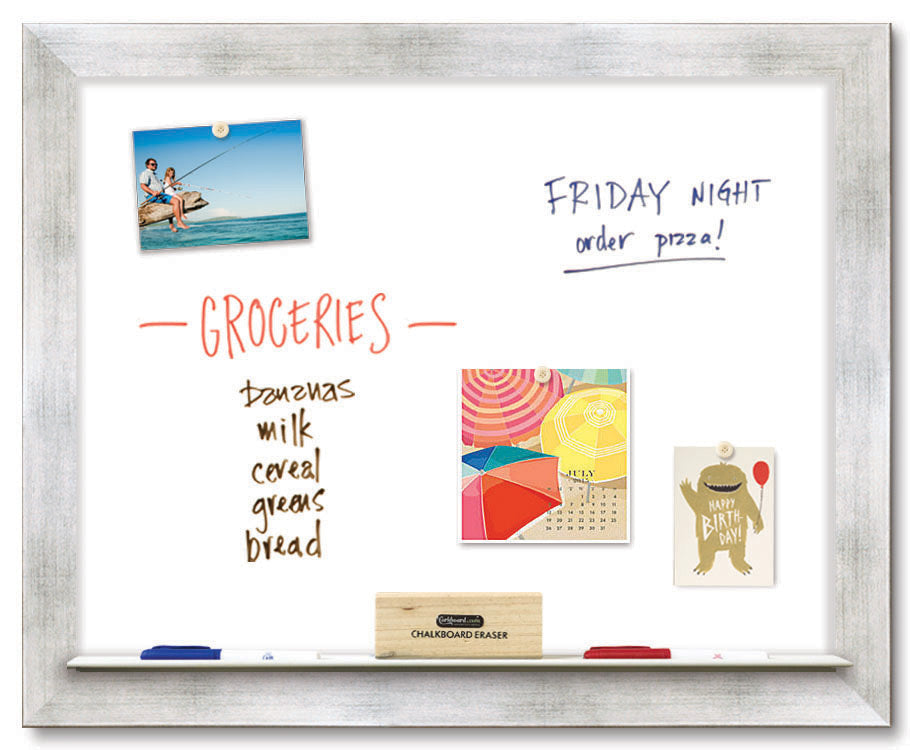 FRIDAY NIGHT
order pizza!
— GROCERIES —
bananas
milk
cereal
greens
bread
JULY
HAPPY
BIRTH-
DAY!
Corkboard.com
CHALKBOARD ERASER